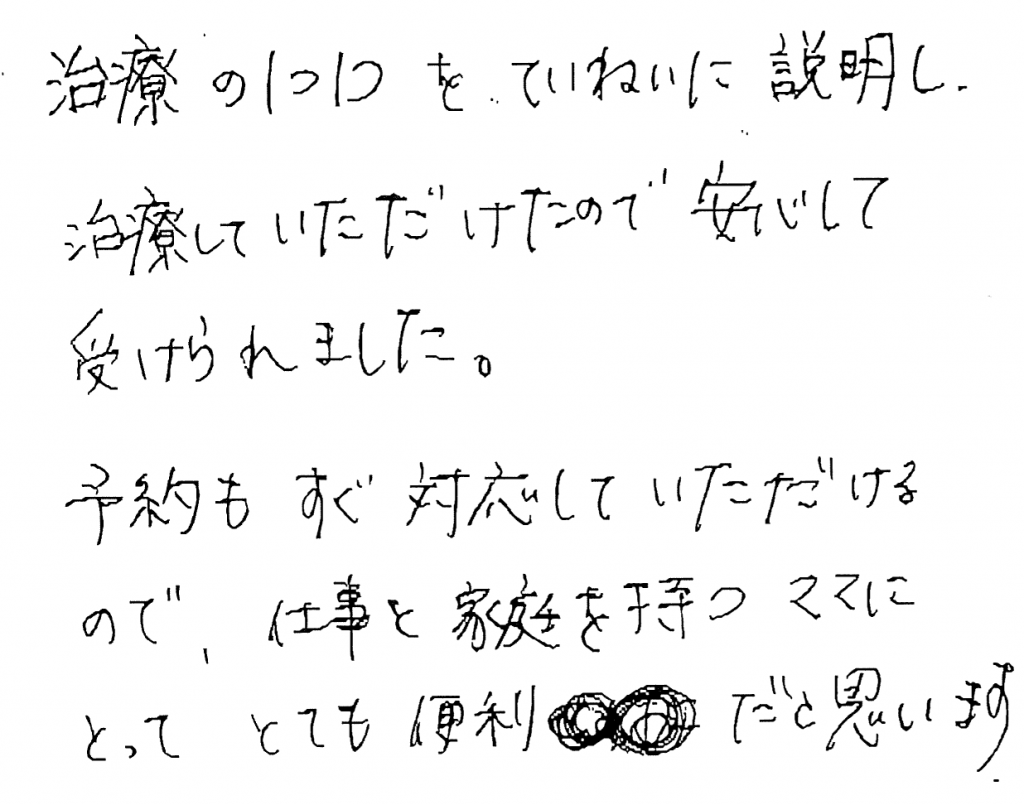 治療の1つ1つを、ていねいに説明し、
治療していただけたので安心して
受けられました。
予約もすぐ対応していただける
ので、仕事と家庭を持つママに
とって とても便利だと思います